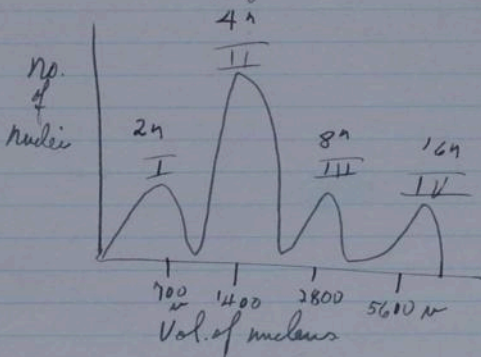 4n
II
No.
of
nuclei
2n
I
8n
III
16n
IV
700
1400
2800
5600
Vol. of nucleus